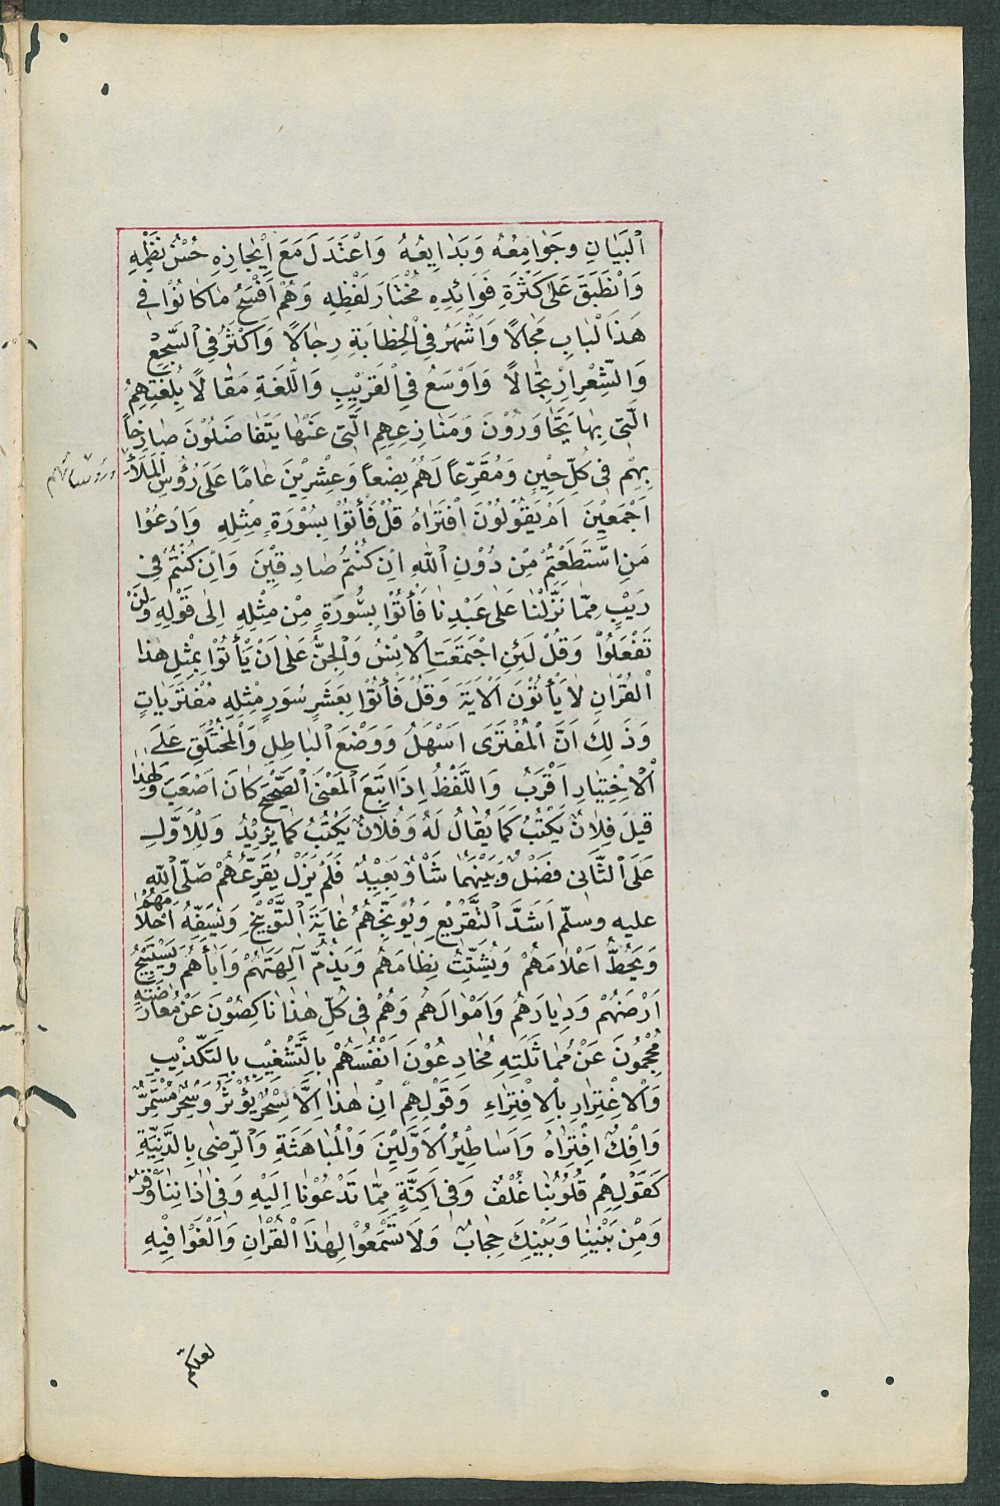 اَلْبَيَانِ وَجَوَامِعُهُ وَبَدَايِعُهُ وَاعْتَدَلَ مَعَ اِيْجَازِهِ حُسْنُ نَظْمِهِ
وَانْطَبَقَ عَلَى كَثْرَةِ فَوَائِدِهِ مُخْتَارُ لَفْظِهِ وَهُمْ اَفْسَحُ مَا كَانُوْا فِى
هَذَا الْبَابِ مَجَالًا وَاَشْهَرُ فِى الْخِطَابَةِ رِجَالًا وَاَكْثَرُ فِى السَّجْعِ
وَالشِّعْرِ اِرْتِجَالًا وَاَوْسَعُ فِى الْغَرِيْبِ وَاللُّغَةِ مَقَالًا بِلُغَتِهِمُ
الَّتِى بِهَا يَتَحَاوَرُوْنَ وَمَنَازِعِهِمِ الَّتِى عَنْهَا يَتَفَاضَلُوْنَ صَارِخًا
بِهِمْ فِى كُلِّ حِيْنٍ وَمُقَرِّعًا لَهُمْ بِضْعًا وَعِشْرِيْنَ عَامًا عَلَى رُؤُسِ الْمَلَأِ
اَجْمَعِيْنَ اَمْ يَقُوْلُوْنَ افْتَرَاهُ قُلْ فَأْتُوْا بِسُوْرَةٍ مِثْلِهِ وَادْعُوْا
مَنِ اسْتَطَعْتُمْ مِنْ دُوْنِ اللهِ اِنْ كُنْتُمْ صَادِقِيْنَ وَاِنْ كُنْتُمْ فِى
رَيْبٍ مِمَّا نَزَّلْنَا عَلَى عَبْدِنَا فَأْتُوْا بِسُوْرَةٍ مِنْ مِثْلِهِ اِلَى قَوْلِهِ وَلَنْ
تَفْعَلُوْا وَقُلْ لَئِنِ اجْتَمَعَتِ الْاِنْسُ وَالْجِنُّ عَلَى اَنْ يَأْتُوْا بِمِثْلِ هٰذَا
الْقُرْاٰنِ لَا يَأْتُوْنَ اَلْاٰيَةَ وَقُلْ فَأْتُوْا بِعَشْرِ سُوَرٍ مِثْلِهِ مُفْتَرَيَاتٍ
وَذَلِكَ اَنَّ الْمُفْتَرَى اَسْهَلُ وَوَضْعَ الْبَاطِلِ وَالْمُخْتَلَقِ عَلَى
الْاِخْتِيَارِ اَقْرَبُ وَاللَّفْظُ اِذَا اتَّبَعَ الْمَعْنَى الصَّحِيْحَ كَانَ اَصْعَبَ وَلِهٰذَا
قِيْلَ فُلَانٌ يَكْتُبُ كَمَا يُقَالُ لَهُ وَفُلَانٌ يَكْتُبُ كَمَا يُرِيْدُ وَلِلْاَوَّلِ
عَلَى الثَّانِى فَضْلٌ وَبَيْنَهُمَا شَأْوٌ بَعِيْدٌ فَلَمْ يَزَلْ يُقَرِّعُهُمْ صَلَّى اللهِ
عليه وسلّم اَشَدَّ التَّقْرِيْعِ وَيُوَبِّخُهُمْ غَايَةَ التَّوْبِيْخِ وَيُسَفِّهُ اَحْلَامَهُمْ
وَيَحُطُّ اَعْلَامَهُمْ وَيُشَتِّتُ نِظَامَهُمْ وَيَذُمُّ آلِهَتَهُمْ وَاٰبَأَهُمْ وَيَسْتَبِيْحُ
اَرْضَهُمْ وَدِيَارَهُمْ وَاَمْوَالَهُمْ وَهُمْ فِى كُلِّ هٰذَا نَاكِصُوْنَ عَنْ مُعَارَضَتِهِ
مُحْجِمُوْنَ عَنْ مُمَاثَلَتِهِ مُخَادِعُوْنَ اَنْفُسَهُمْ بِالتَّشْغِيْبِ بِالتَّكْذِيْبِ
وَالْاِغْتِرَارِ بِالْاِفْتِرَاءِ وَقَوْلِهِمْ اِنْ هٰذَا اِلَّا سِحْرٌ يُؤْثَرُ وَسِحْرٌ مُسْتَمِرٌّ
وَاِفْكٌ افْتَرَاهُ وَاَسَاطِيْرُ الْاَوَّلِيْنَ وَالْمُبَاهَتَةِ وَالرِّضٰى بِالدَّنِيَّةِ
كَقَوْلِهِمْ قُلُوْبُنَا غُلْفٌ وَفِى اَكِنَّةٍ مِمَّا تَدْعُوْنَا اِلَيْهِ وَفِى اٰذَانِنَا وَقْرٌ
وَمِنْ بَيْنِنَا وَبَيْنِكَ حِجَابٌ وَلَا تَسْمَعُوْا لِهٰذَا الْقُرْاٰنِ وَالْغَوْا فِيْهِ